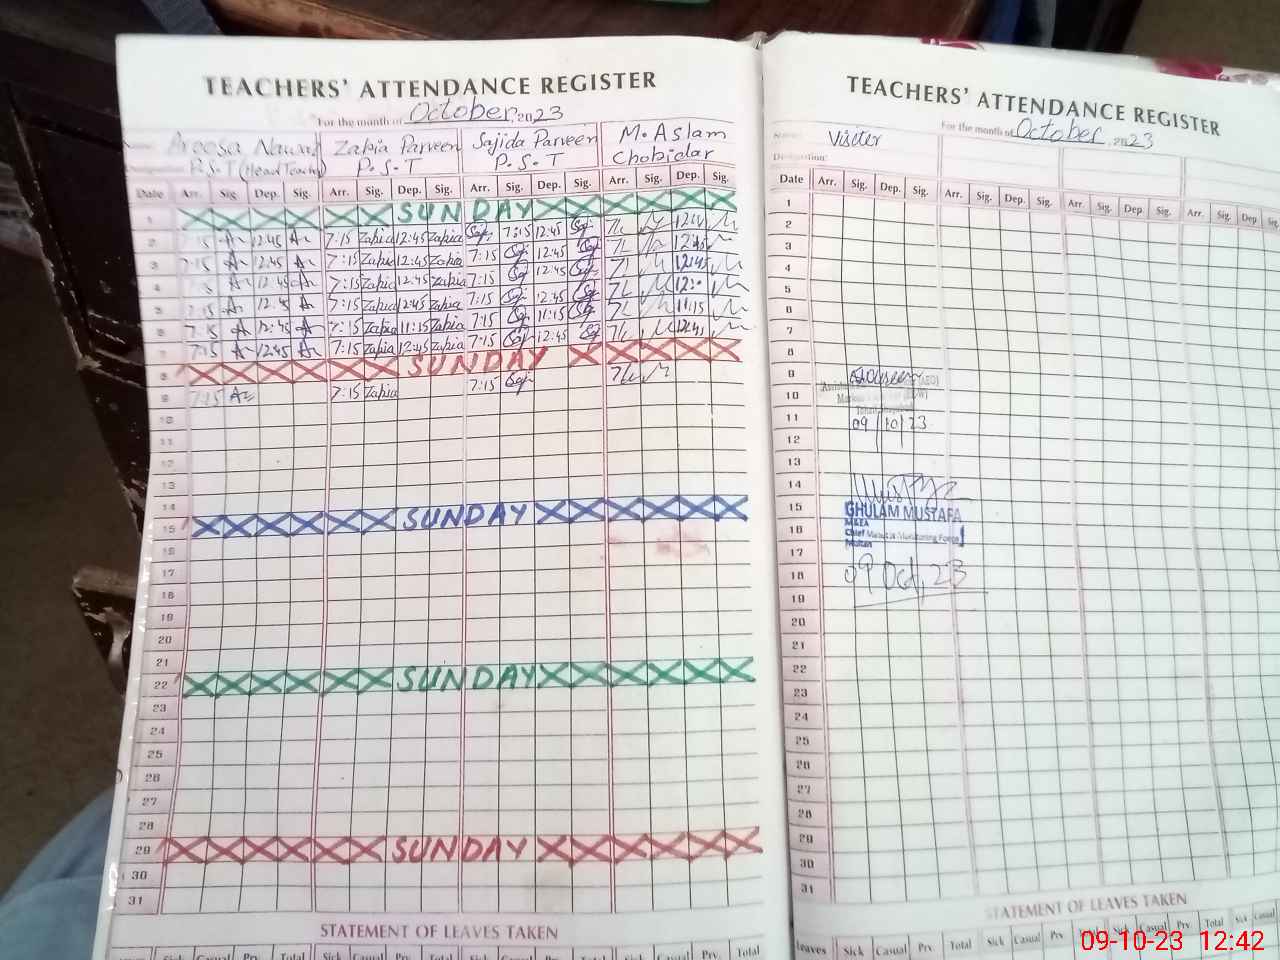 TEACHERS' ATTENDANCE REGISTER
For the month of October, 2023
Areesa Nawaz Zakia Parveen Sajida Parveen M. Aslam
P.S.T (Head Teacher) P.S.T P.S.T Chobidar
Date Arr. Sig. Dep. Sig. Arr. Sig. Dep. Sig. Arr. Sig. Dep. Sig. Arr. Sig. Dep. Sig.
1 SUNDAY
2 7:15 12:45 7:15 Zakia 12:45 Zakia 7:15 12:45
3 7:15 12:45 7:15 Zakia 12:45 Zakia 7:15 12:45 12:45
4 7:15 12:45 7:15 Zakia 12:45 Zakia 7:15 12:45 12:45
5 7:15 12:45 7:15 Zakia 12:45 Zakia 7:15 12:45
6 7:15 7:15 Zakia 11:15 Zakia 7:15 11:15 11:15
7 7:15 12:45 7:15 Zakia 12:45 Zakia 7:15 12:45 12:45
8 SUNDAY
9 7:15 7:15 Zakia 7:15
10
11
12
13
14
15 SUNDAY
16
17
18
19
20
21
22 SUNDAY
23
24
25
26
27
28
29 SUNDAY
30
31
STATEMENT OF LEAVES TAKEN
Sick Casual Prv. Total Sick Casual Prv. Total Sick Casual Prv. Total Sick Casual Prv. Total
TEACHERS' ATTENDANCE REGISTER
For the month of October, 2023
Name: Visiter
Designation:
Date Arr. Sig. Dep. Sig. Arr. Sig. Dep. Sig. Arr. Sig. Dep. Sig. Arr. Sig. Dep Sig
1
2
3
4
5
6
7
8
9 (AEO)
10
11 09/10/23
12
13
14
15 GHULAM MUSTAFA
16 MEA
Chief Minister's Monitoring Force
Multan
17
18 09 Oct, 23
19
20
21
22
23
24
25
26
27
28
29
30
31
STATEMENT OF LEAVES TAKEN
Leaves Sick Casual Prv. Total Sick Casual Prv. Total Sick Casual Prv. Total Sick Casual
09-10-23 12:42